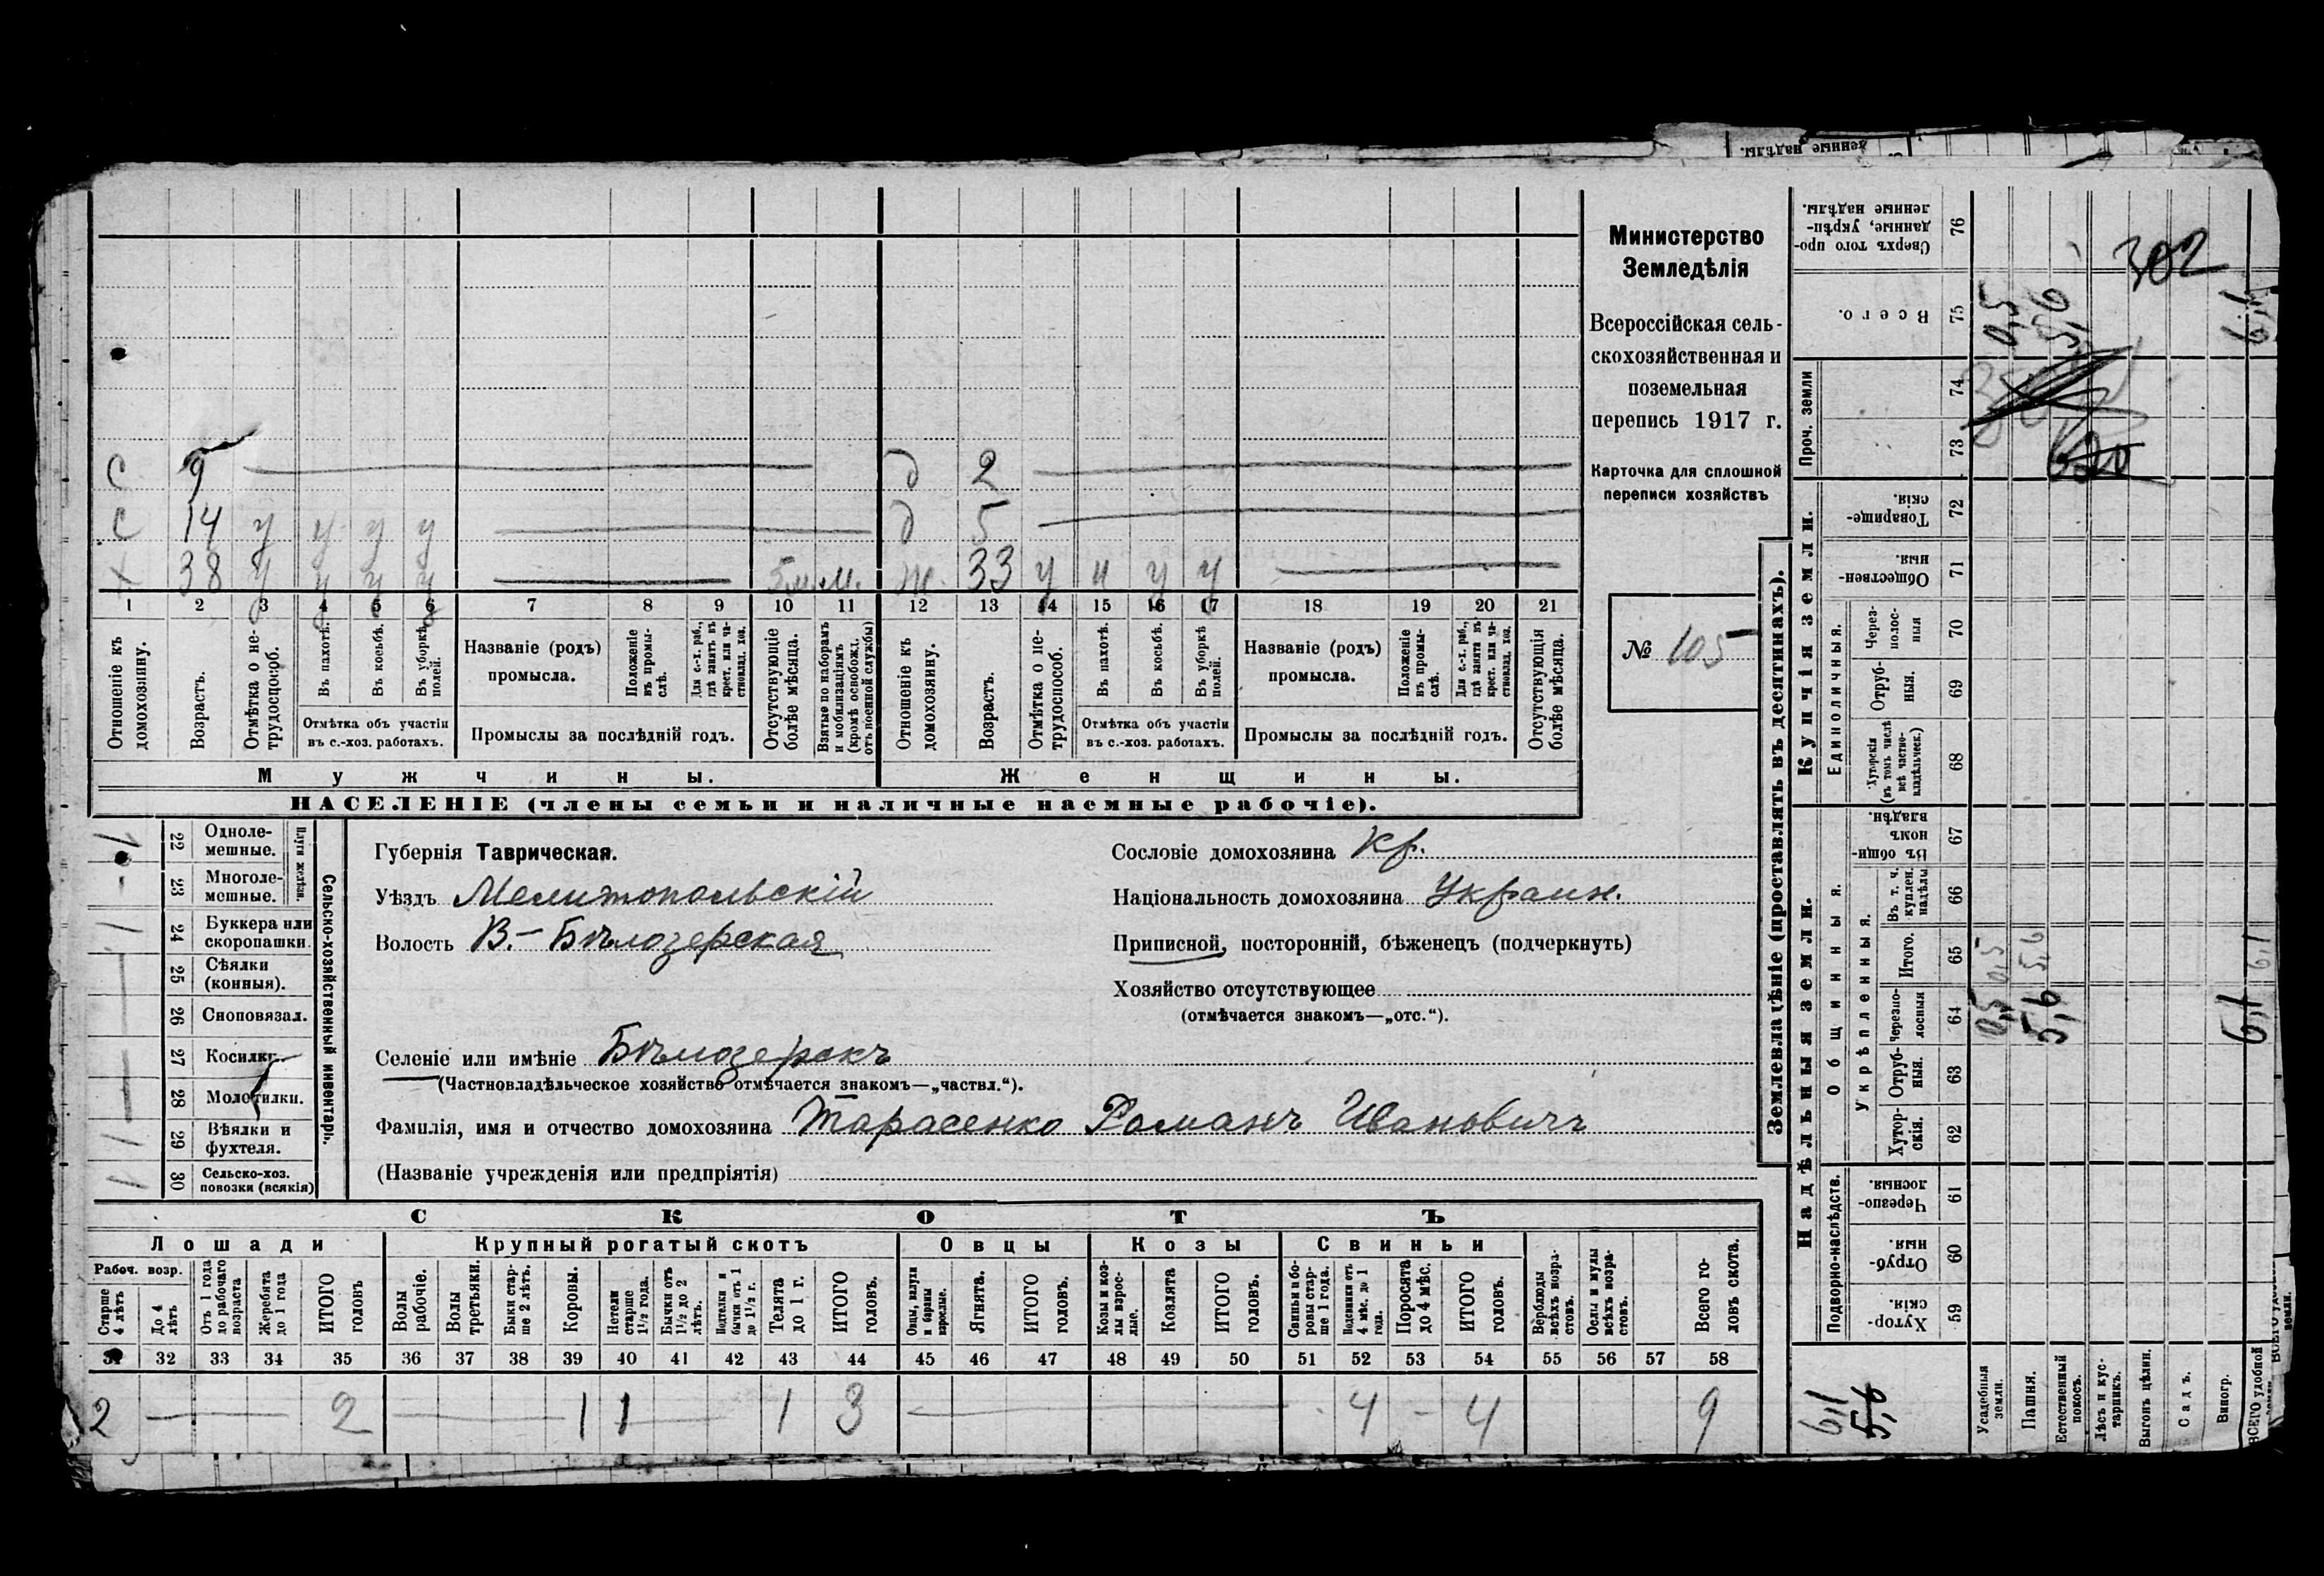 Министерство
Земледѣлія
Всероссійская сель-
скохозяйственная и
поземельная
перепись 1917 г.
Карточка для сплошной
переписи хозяйствъ
№ 105
302
С 9 д 2
С 14 у у у у д 5
х 38 у у у у 5 м. м. ж. 33 у и у у
1 2 3 4 5 6 7 8 9 10 11 12 13 14 15 16 17 18 19 20 21
Отношеніе къ домохозяину.
Возрастъ.
Отмѣтка о не-трудоспособ.
Въ пахотѣ.
Въ косьбѣ.
Въ уборкѣ полей.
Отмѣтка объ участіи
въ с.-хоз. работахъ.
Названіе (родъ)
промысла.
Положеніе въ промы-слѣ.
Для с.-х. раб., гдѣ занятъ въ крест. или ча-стновлад. хоз.
Промыслы за послѣдній годъ.
Отсутствующіе болѣе мѣсяца.
Взятые по наборамъ и мобилизаціямъ (кромѣ освобожд. отъ военной службы)
Отношеніе къ домохозяину.
Возрастъ.
Отмѣтка о не-трудоспособ.
Въ пахотѣ.
Въ косьбѣ.
Въ уборкѣ полей.
Отмѣтка объ участіи
въ с.-хоз. работахъ.
Названіе (родъ)
промысла.
Положеніе въ промы-слѣ.
Для с.-х. раб., гдѣ занята въ крест. или ча-стновлад. хоз.
Промыслы за послѣдній годъ.
Отсутствующія болѣе мѣсяца.
Мужчины. Женщины.
НАСЕЛЕНІЕ (члены семьи и наличные наемные рабочіе).
Сельско-хозяйственный инвентарь.
Плуги желѣзн.
1 22 Однолемешные.
— 23 Многолемешные.
1 24 Буккера или скоропашки.
25 Сѣялки (конныя).
26 Сноповязал.
27 Косилки.
28 Молотилки.
1 29 Вѣялки и фухтеля.
1 30 Сельско-хоз. повозки (всякія)
Губернія Таврическая.
Уѣздъ Мелитопольскій
Волость В.-Бѣлозерская
Селеніе или имѣніе Бѣлозеркъ
(Частновладѣльческое хозяйство отмѣчается знакомъ—„частвл.“).
Фамилія, имя и отчество домохозяина Тарасенко Романъ Ивановичъ
(Названіе учрежденія или предпріятія)
Сословіе домохозяина Кр.
Національность домохозяина Украин.
Приписной, посторонній, бѣженецъ (подчеркнуть)
Хозяйство отсутствующее
(отмѣчается знакомъ—„отс.“).
СКОТЪ
Лошади Крупный рогатый скотъ Овцы Козы Свиньи
Рабоч. возр.
Старше 4 лѣтъ
До 4 лѣтъ
Отъ 1 года до рабочаго возраста
Жеребята до 1 года
ИТОГО головъ
Волы рабочіе.
Волы третьяки.
Быки стар-ше 2 лѣтъ.
Коровы.
Нетели старше 1½ года.
Бычки отъ 1½ до 2 лѣтъ.
Подтелки и бычки отъ 1 до 1½ г.
Телята до 1 г.
ИТОГО головъ.
Овцы, валухи и бараны взрослые.
Ягнята.
ИТОГО головъ.
Козы и коз-лы взрос-лые.
Козлята
ИТОГО головъ.
Свиньи и бо-ровы стар-ше 1 года.
Подсвинки отъ 4 мѣс. до 1 года.
Поросята до 4 мѣс.
ИТОГО головъ.
Верблюды всѣхъ возра-стовъ.
Ослы и мулы всѣхъ возра-стовъ.
Всего го-ловъ скота.
31 32 33 34 35 36 37 38 39 40 41 42 43 44 45 46 47 48 49 50 51 52 53 54 55 56 57 58
2 — 2 — 1 1 — 1 3 — 4 — 4 9
Землевладѣніе (проставлять въ десятинахъ).
Надѣльныя земли. Купчія земли.
Подворно-наслѣдств.
Общинныя.
Укрѣпленныя.
Единоличныя.
Проч. земли
Хутор-скія. 59
Отруб-ныя. 60
Черезпо-лосныя. 61
Хутор-скія. 62
Отруб-ныя. 63
Черезпо-лосныя 64
Итого. 65
Въ т. ч. куплен. надѣлы 66
Въ общи-номъ владѣн. 67
Хуторскія (въ томъ числѣ всѣ частно-владѣльческ.) 68
Отруб-ныя. 69
Через-полос-ныя 70
Обществен-ныя. 71
Товарище-скія. 72
73
74
Всего. 75
Сверхъ того про-данные, укрѣп-ленные надѣлы. 76
Усадебныя земли. 0,5 0,5 0,5
Пашня. 5,6 5,6 5,6
Естественный покосъ.
Лѣсъ и кус-тарникъ.
Выгонъ цѣлин.
Садъ.
Виногр.
ВСЕГО удобной 6,1 6,1 6,1
6,1
5,6